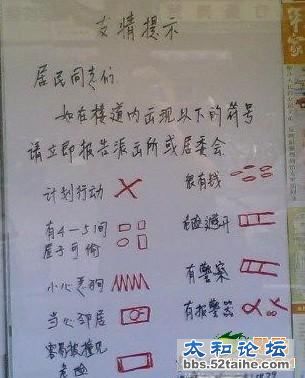 友情提示
居民同志们
如在楼道内出现以下的符号
请立即报告派出所或居委会
计划行动
很有钱
有4-5间
屋子可偷
危险避开
小心恶狗
有警察
当心邻居
有报警器
容易被撞见
危险
太和论坛
bbs.52taihe.com